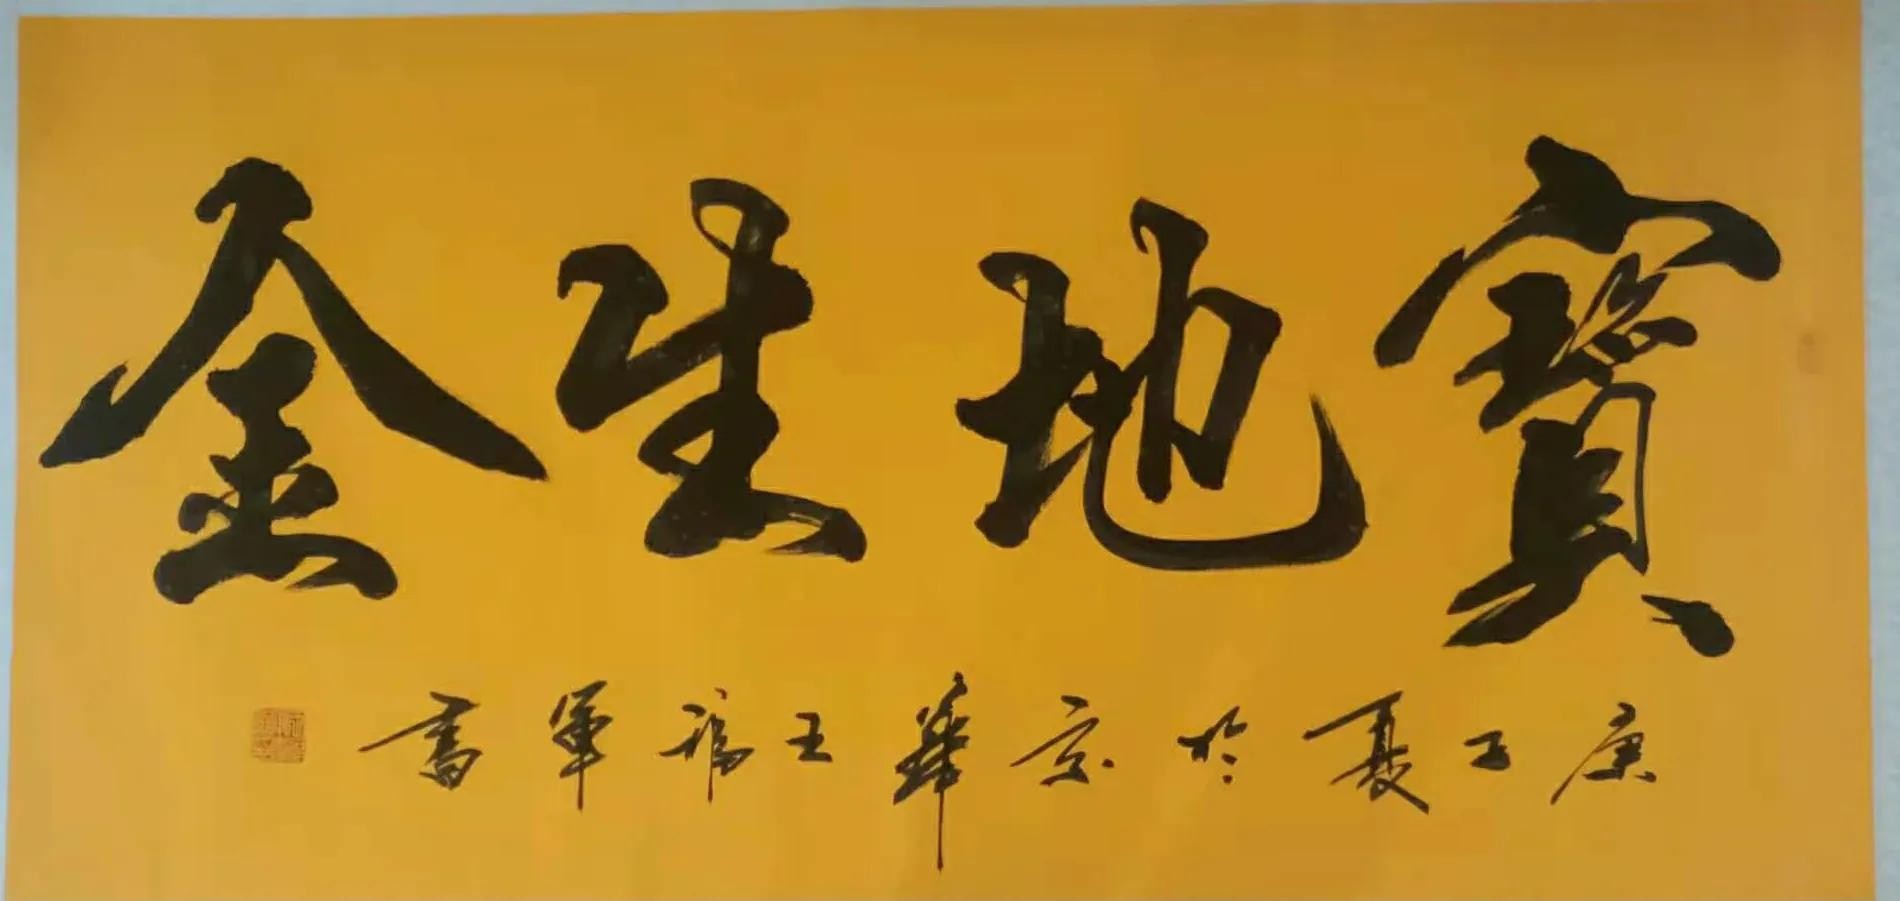 寶地生金
庚子夏於京華王福軍書